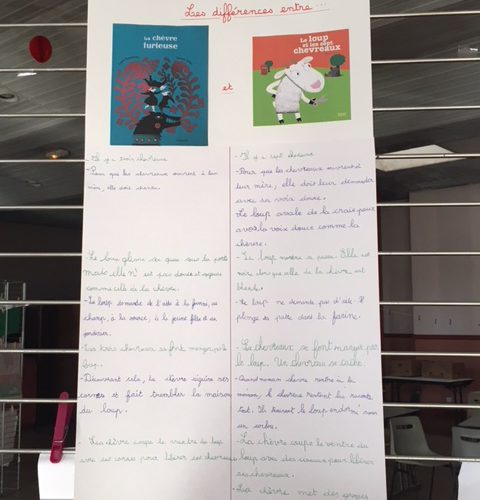 Les différences entre...
La chèvre
furieuse
Le loup
et les sept
chevreaux
et
- Il y a trois chevreaux
- Pour que les chevreaux ouvrent à leur
mère, elle doit chanter.
- Il y a sept chevreaux
- Pour que les chevreaux ouvrent à
leur mère, elle doit leur demander
avec sa voix douce.
Le loup avale de la craie pour
avoir la voix douce comme la
chèvre.
- Le loup glisse sa queue sous la porte
mais elle n'est pas douce et soyeuse
comme celle de la chèvre.
- Le loup demande de l'aide à la fermière, au
champ, à la source, à la jeune fille et au
- Le loup montre sa patte. Elle est
noire alors que celle de la chèvre est
blanche.
- Le loup ne demande pas d'aide. Il
plonge sa patte dans la farine.
- Les trois chevreaux se font manger par le
loup.
- Découvrant cela, la chèvre aiguise ses
cornes et fait trembler la maison
du loup.
- Les chevreaux se font manger par
le loup. Un chevreau se cache.
- Quand maman chèvre rentre à la
maison, le chevreau restant lui raconte
tout. Ils trouvent le loup endormi sous
un arbre.
- La chèvre coupe le ventre du loup
avec ses cornes pour libérer ses chevreaux
- La chèvre coupe le ventre du
loup avec des ciseaux pour libérer
ses chevreaux.
- La chèvre met des grosses